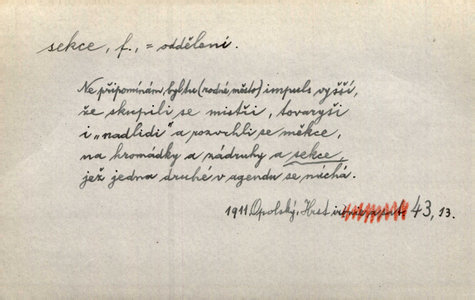 sekce, f., = oddělení.
Ne připomínám, byl tu (rodné město) impuls vyšší,
že skupili se mistři, tovaryši
i „nadlidi" a rozvrhli se měkce,
na hromádky a zádruhy a sekce,
jež jedna druhé v agendu se míchá.
1911 Opolský, Hrst 43, 13.